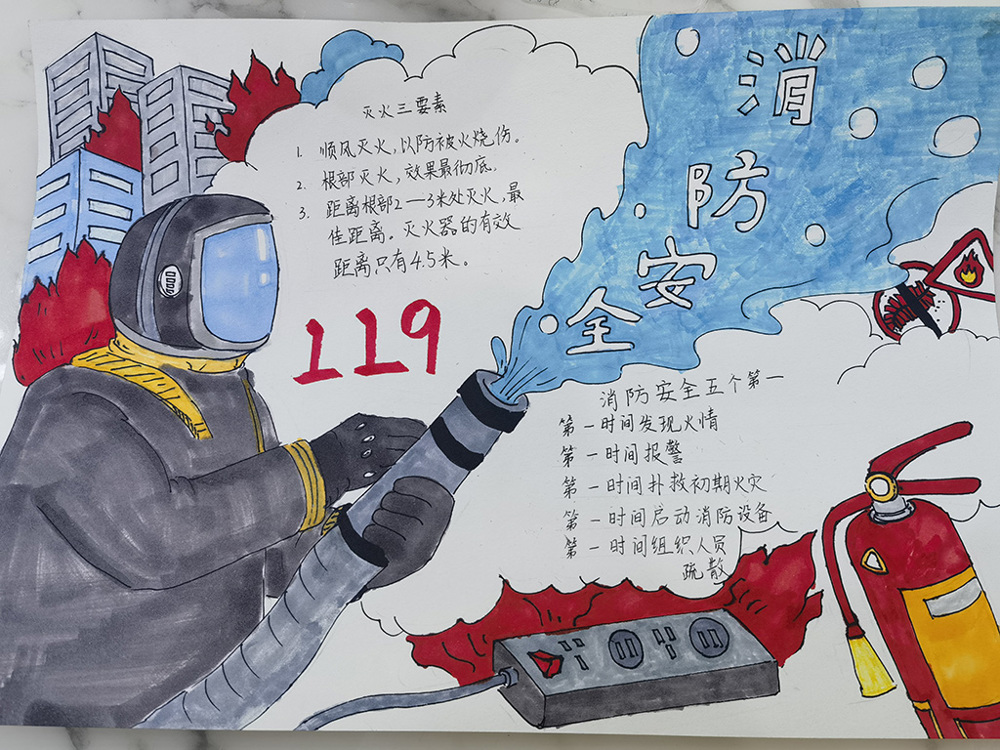 消防安全
灭火三要素
1. 顺风灭火,以防被火烧伤。
2. 根部灭火,效果最彻底.
3. 距离根部2—3米处灭火,最
佳距离。灭火器的有效
距离只有4.5米。
119
消防安全五个第一
第一时间发现火情
第一时间报警
第一时间扑救初期火灾
第一时间启动消防设备
第一时间组织人员
疏散